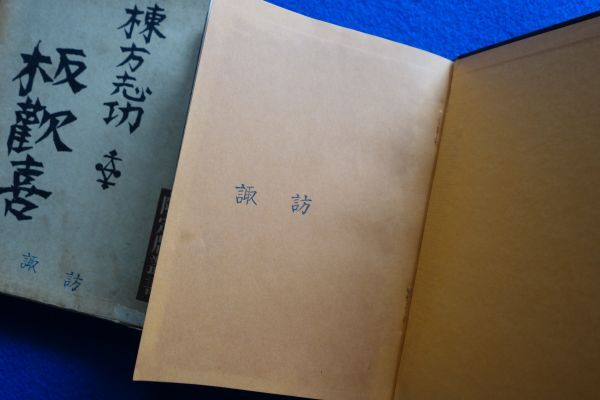 棟方志功
板歡喜
諏訪
諏訪